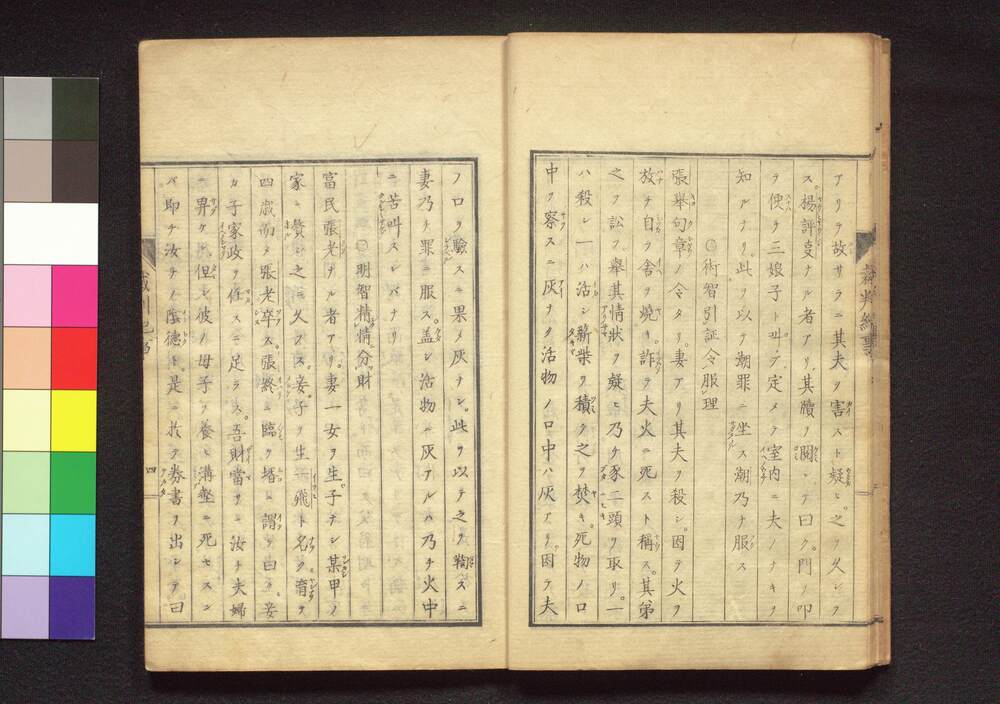 アリテ故サラニ其夫ヲ害スト疑ヒ之ヲ久シク
ス楊評事ナル者アリ其牘ヲ閲シテ曰ク門ヲ叩
テ便チ三娘子ト叫フ定メテ室内ニ夫ノナキヲ
知ルナリ此ヲ以テ潮罪ニ坐ス潮乃チ服ス
○術智引証令服理
張舉句章ノ令タリ妻アリ其夫ヲ殺シ因テ火ヲ
放チ自ラ舎ヲ焼キ詐テ夫火ニ死スト稱ス其弟
之ヲ訟フ舉其情状ヲ疑ヒ乃チ豕二頭ヲ取リ一
ハ殺シ一ハ活シ薪柴ヲ積テ之ヲ焚キ死物ノ口
中ヲ察スニ灰ヲク活物ノ口中ハ灰アリ因テ夫
ノ口ヲ驗スニ果メ灰ナシ此ヲ以テ之ヲ鞫スニ
妻乃チ罪ニ服ス蓋シ活物ニ灰アルハ乃チ火中
ニ苦叫スレバナリ
○明智精情分財
富民張老ナル者アリ妻一女ヲ生子ナシ某甲ノ
家ニ贅シ之ニ久フス妾子ヲ生一飛ト名ク育ヲ
四歳而メ張老卒ス張終ニ臨ク壻ニ謂テ曰ク妾
カ子家政ヲ任スニ足ラス吾財當サニ汝ナ夫婦
ニ畀ク但シ彼ノ母子ヲ養ヒ溝壑ニ死セスン
バ即チ汝チノ陰德ト是ニ於テ券書ヲ出シテ曰
四